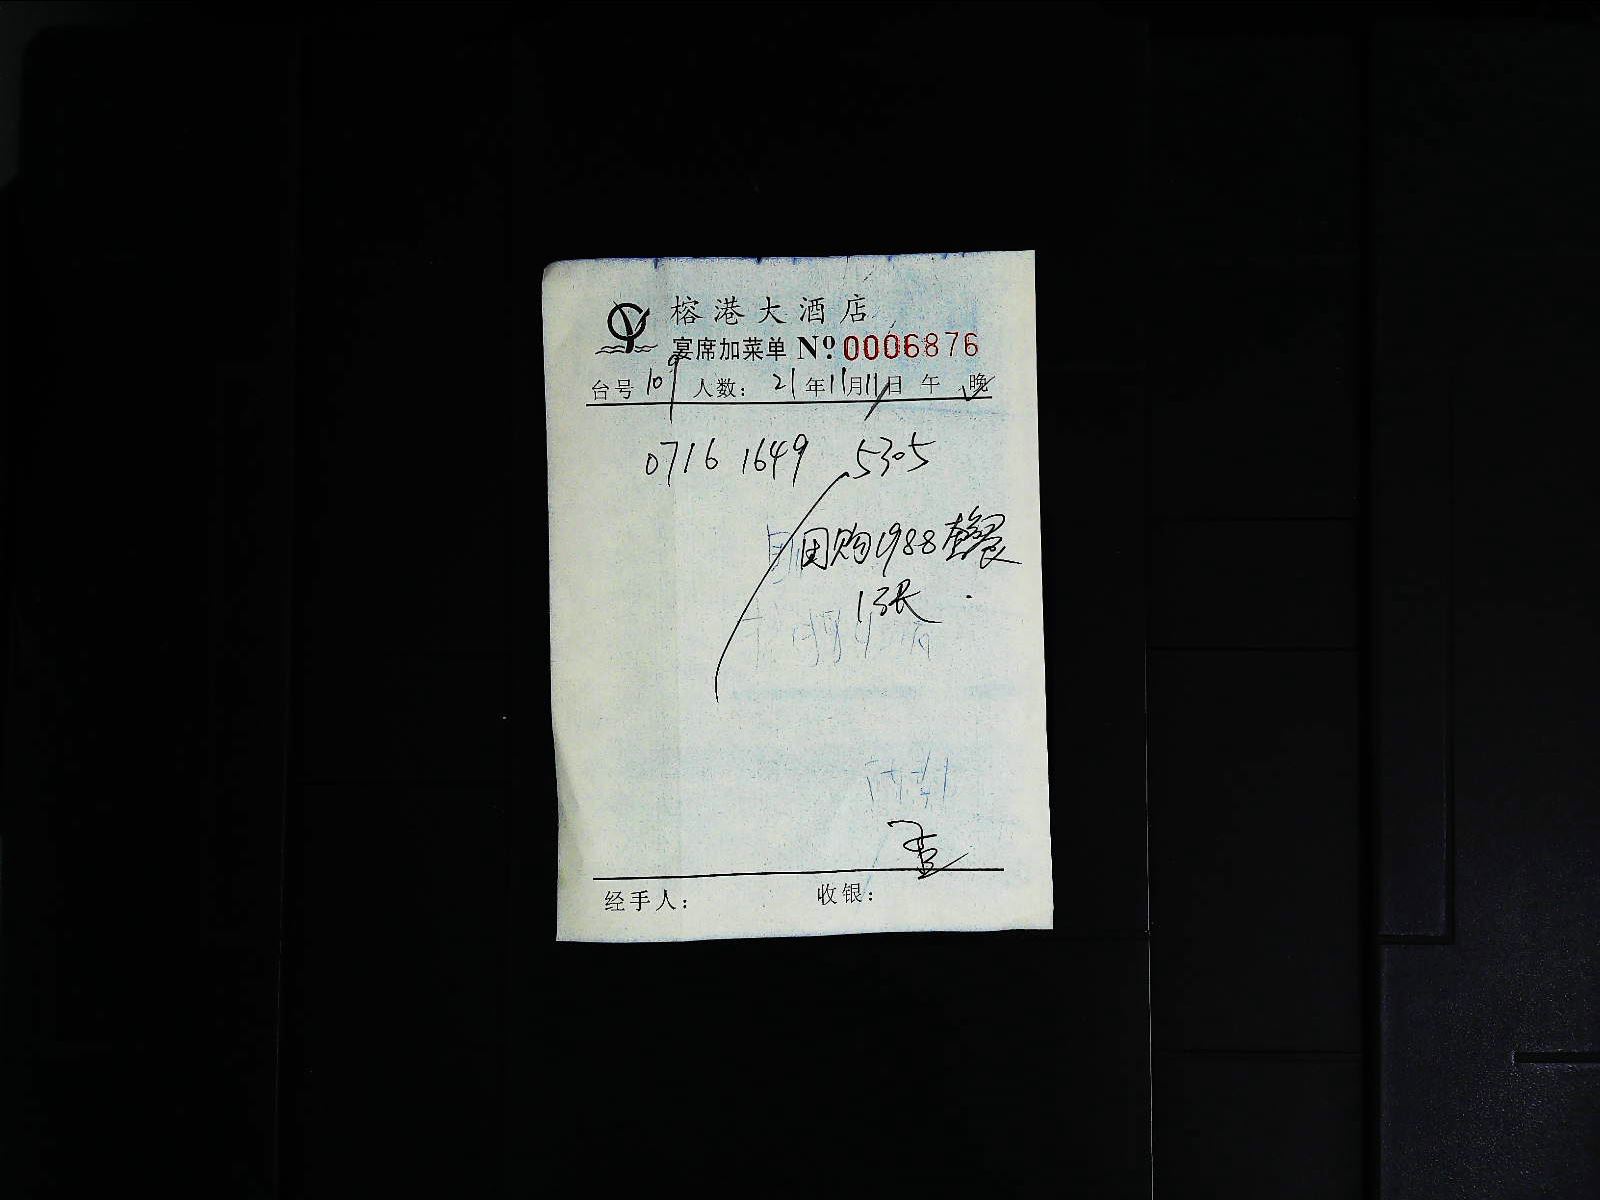 榕港大酒店
宴席加菜单 Nº 0006876
台号 109 人数: 21年11月11日 午 晚
0716 1649 5305
团购1988套餐
1张
经手人: 收银: